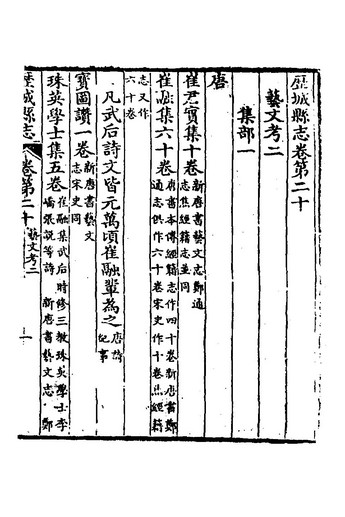 歷城縣志卷第二十
藝文考二
集部一
唐
崔君實集十卷新唐書藝文志鄭通
志焦經籍志並同
崔融集六十卷唐書本傳經籍志作四十卷新唐書鄭
通志俱作六十卷宋史作十卷焦經籍
志又作
六十卷
凡武后詩文皆元萬頃崔融輩為之唐詩
紀事
寶圖讚一卷新唐書藝文
志宋史同
珠英學士集五卷崔融集武后時修三教珠英學士李
嶠張說等詩 新唐書藝文志 鄭
歷城縣志 卷第二十 藝文考二 一